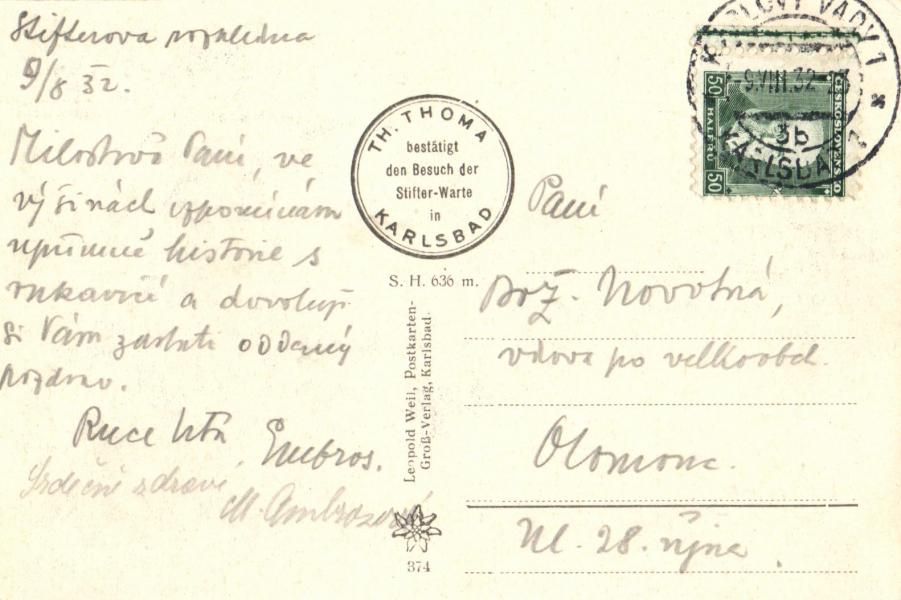 Stifterova rozhledna
9/8 32.
Milostivá Paní, ve
výšinách vzpomínám
upřímně historie s
rukavicí a dovoluji
si Vám zaslati oddaný
pozdrav.
Ruce líbá
Srdečně zdraví
M. Ambrosová
TH. THOMA
bestätigt
den Besuch der
Stifter-Warte
in
KARLSBAD
S. H. 636 m.
Leopold Weil, Postkarten-
Groß-Verlag, Karlsbad.
374
KARLOVY VARY 1
-9.VIII.32
3b
KARLSBAD 1
ČESKOSLOVENSKO
50 HALÉŘŮ 50
Paní
Bož. Novotná,
vdova po velkoobch.
Olomouc.
Ul. 28. října